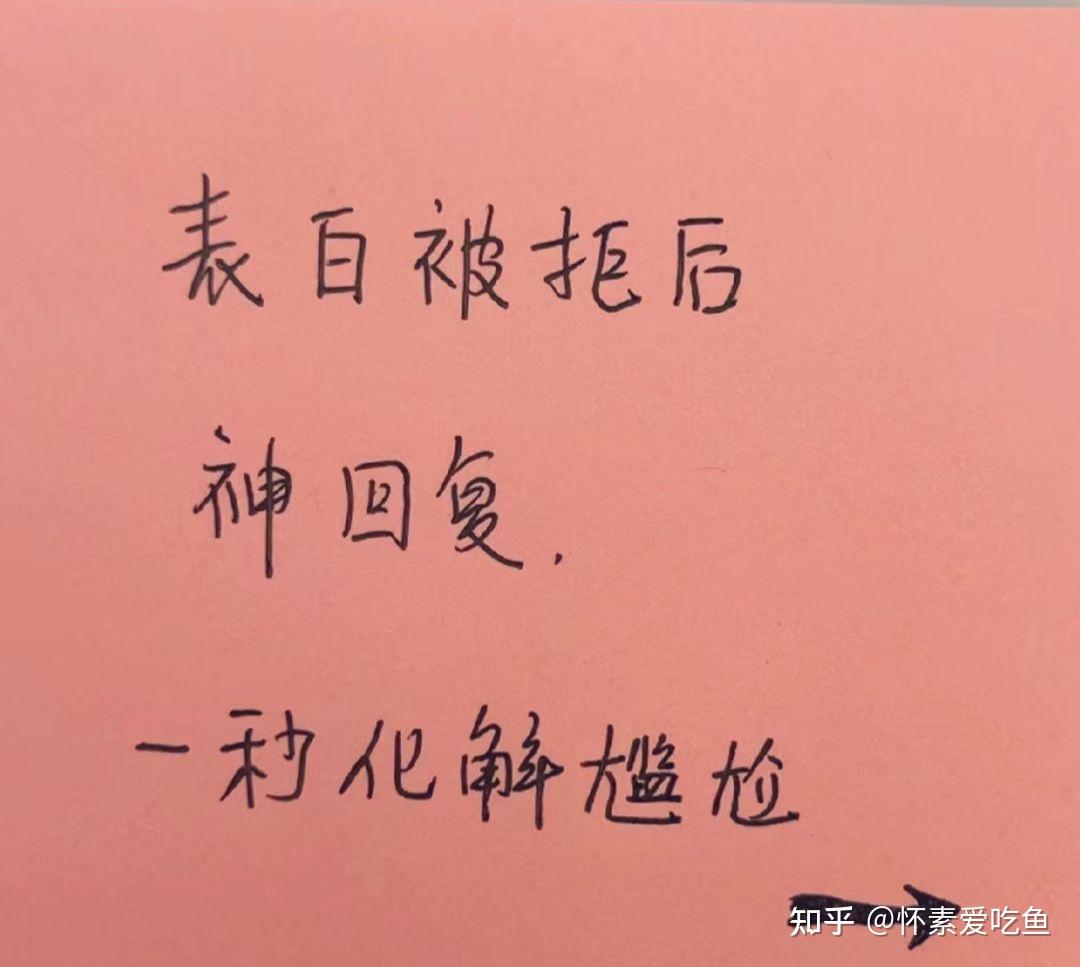 表白被拒后
神回复.
一秒化解尴尬
知乎 @怀素爱吃鱼